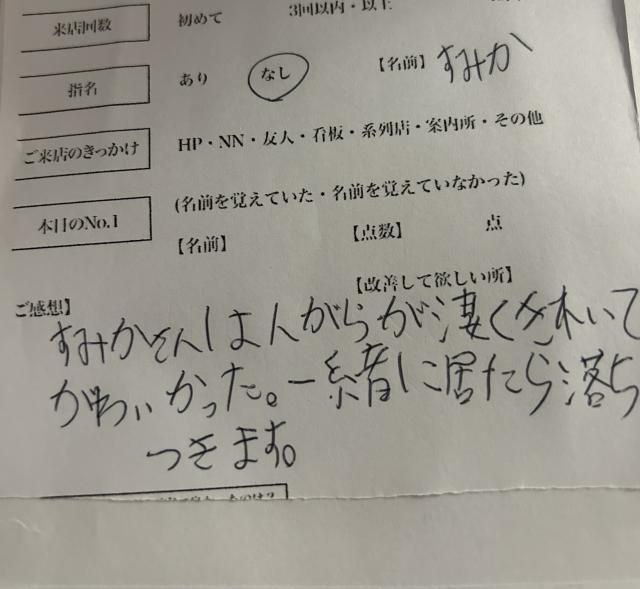 来店回数 初めて 3回以内・以上
指名 あり なし 【名前】すみか
ご来店のきっかけ HP・NN・友人・看板・系列店・案内所・その他
本日のNo.1 (名前を覚えていた・名前を覚えていなかった)
【名前】 【点数】 点
ご感想】 【改善して欲しい所】
すみかさんは人がらが凄くきれいで
かわいかった。一緒に居たら落ち
つきます。